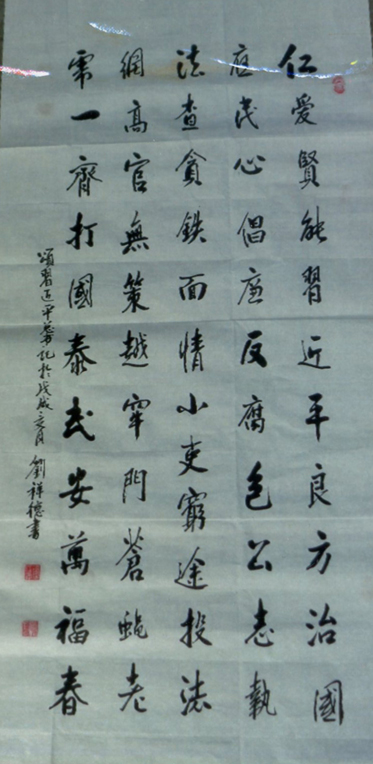 仁愛賢能習近平良方治國
應民心倡廉反腐包公志執
法查貪鉄面情小吏窮途投法
網高官無策越牢門蒼蠅老
虎一齊打國泰民安萬福春
頌習近平總書記於戊戌月 劉祥德書